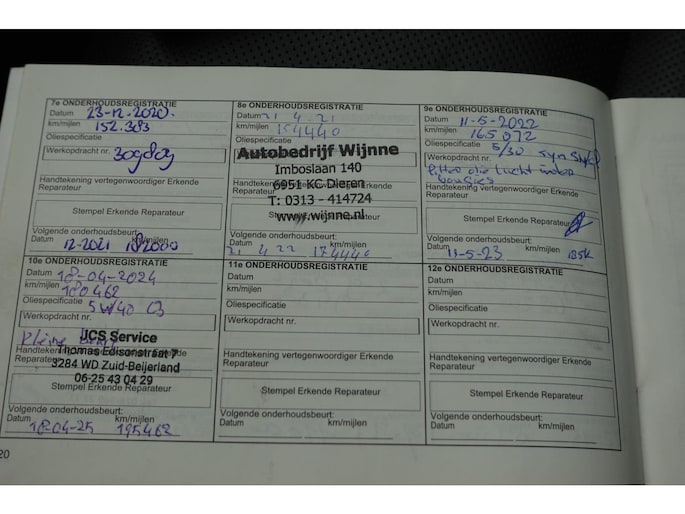 7e ONDERHOUDSREGISTRATIE
Datum 23-12-2020.
km/mijlen 152.383
Oliespecificatie
Werkopdracht nr.
Handtekening vertegenwoordiger Erkende
Reparateur
Stempel Erkende Reparateur
Volgende onderhoudsbeurt:
Datum 12-2021 km/mijlen
8e ONDERHOUDSREGISTRATIE
Datum 21 4 21
km/mijlen 154440
Oliespecificatie
Autobedrijf Wijnne
Imboslaan 140
6951 KC Dieren
T: 0313 - 414724
www.wijnne.nl
Stempel Erkende Reparateur
Volgende onderhoudsbeurt:
Datum km/mijlen
21 4 22 174440
9e ONDERHOUDSREGISTRATIE
Datum 11-5-2022
km/mijlen 165072
Oliespecificatie 5/30 syn
Werkopdracht nr.
filter olie lucht
bougies
Handtekening vertegenwoordiger Erkende
Reparateur
Stempel Erkende Reparateur
Volgende onderhoudsbeurt:
Datum 11-5-23 km/mijlen 185k
10e ONDERHOUDSREGISTRATIE
Datum 18-04-2024
km/mijlen 180462
Oliespecificatie 5W40 C3
Werkopdracht nr.
Kleine beurt
JCS Service
Thomas Edisonstraat 7
3284 WD Zuid-Beijerland
06-25 43 04 29
Stempel Erkende Reparateur
Volgende onderhoudsbeurt:
Datum km/mijlen
18-04-25 195462
11e ONDERHOUDSREGISTRATIE
Datum
km/mijlen
Oliespecificatie
Werkopdracht nr.
Handtekening vertegenwoordiger Erkende
Reparateur
Stempel Erkende Reparateur
Volgende onderhoudsbeurt:
Datum km/mijlen
12e ONDERHOUDSREGISTRATIE
Datum
km/mijlen
Oliespecificatie
Werkopdracht nr.
Handtekening vertegenwoordiger Erkende
Reparateur
Stempel Erkende Reparateur
Volgende onderhoudsbeurt:
Datum km/mijlen
20